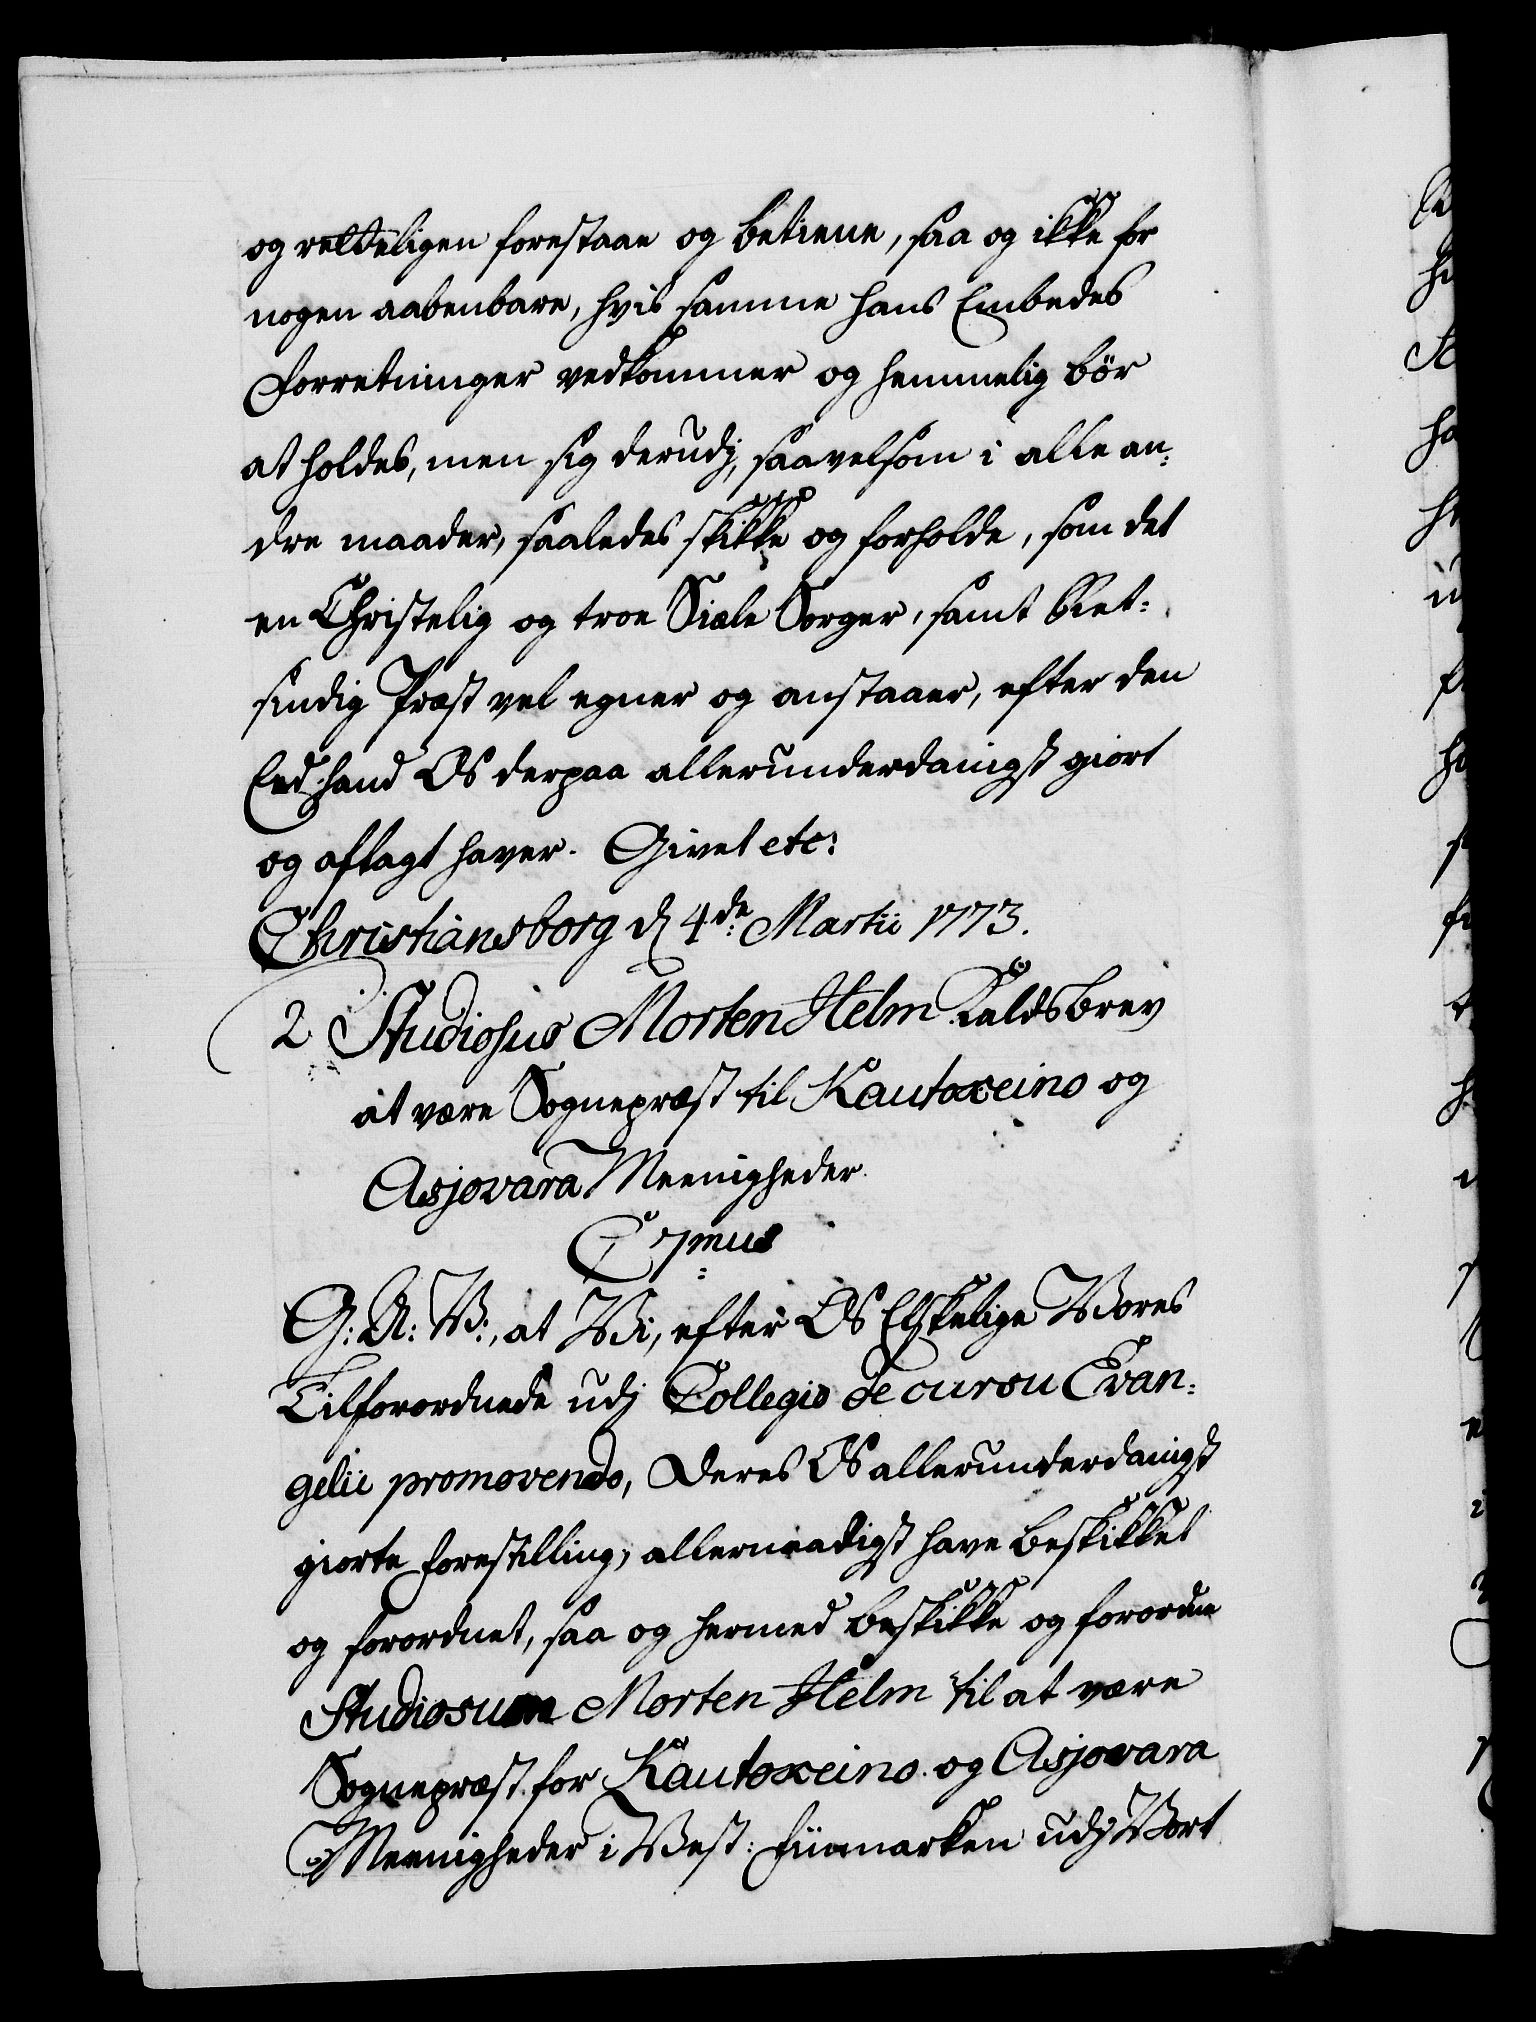 og retteligen forestaae og betiene, saa og ikke for
nogen aabenbare, hvis samme hans Embedes
Forretninger vedkommer og hemmelig bör
at holdes, men sig derudj, saavelsom i alle an-
dre maader, saaledes skikke og forholde, som det
en Christelig og troe Siæle Sörger, samt Ret-
sindig Præst vel egner og anstaaer, efter den
Eed hand Os derpaa allerunderdanigst giort
og aflagt haver. Givet etc:
Christiansborg d 4de Martii 1773.
2 Studiosus Morten Helm Kaldsbrev
at være Sognepræst til Kautoxeino og
Asjovara Meenigheder.
C 7mus
G: A: V:, at Vi, efter Os Elskelige Vores
Tilforordnede udj Collegio de cursu Evan-
gelii promovendo, Deres Os allerunderdanigst
giorte Forestilling, allernaadigst have beskikket
og forordnet, saa og hermed beskikke og forordne
Studiosum Morten Helm til at være
Sognepræst for Kautoxeino og Asjovara
Meenigheder i Vest-Finmarken udj Vort